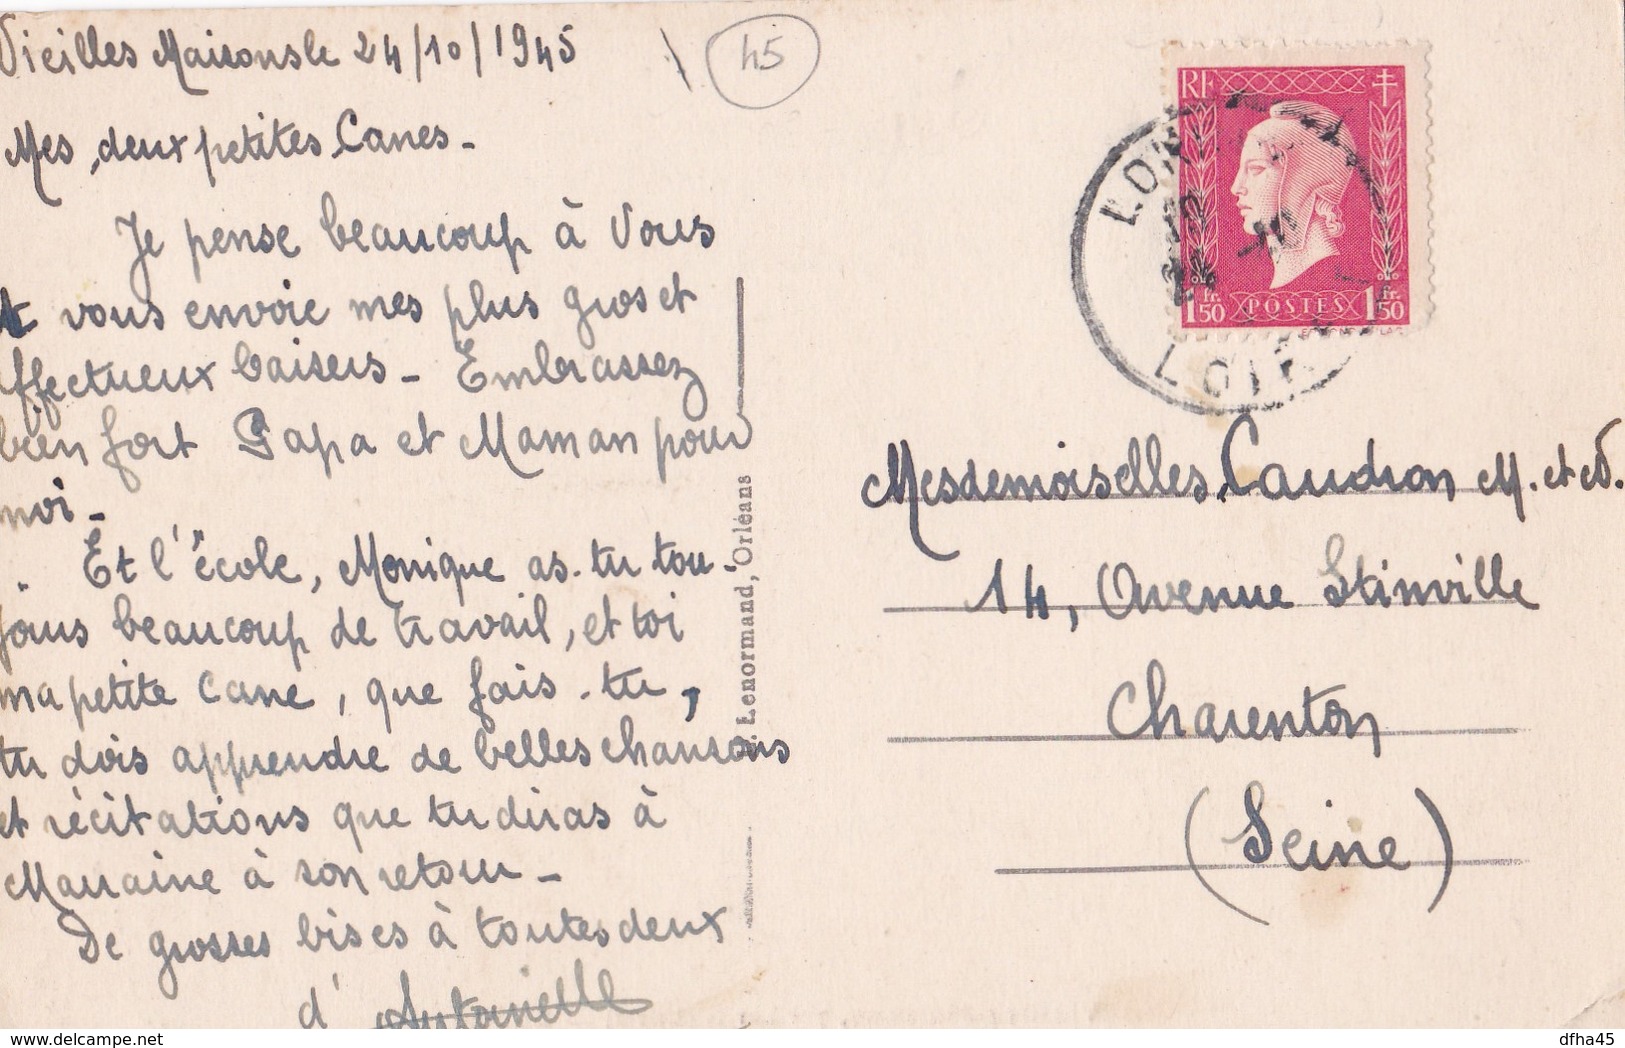 Vieilles Maisons le 24/10/1945
45
Mes deux petites Canes -
Je pense beaucoup à Vous
et vous envoie mes plus gros et
affectueux baisers - Embrassez
bien fort Papa et Maman pour
moi -
Et l'école, Monique as-tu tou-
jours beaucoup de travail, et toi
ma petite Cane, que fais-tu,
tu dois apprendre de belles chansons
et récitations que tu diras à
Marraine à son retour -
De grosses bises à toutes deux
d'Antoinette
Lenormand, Orléans
RF
1 fr. 50 POSTES 1 fr. 50
LOR
LOIRET
Mesdemoiselles Caudron M. et D.
14, Avenue Stinville
Charenton
(Seine)
dfha45